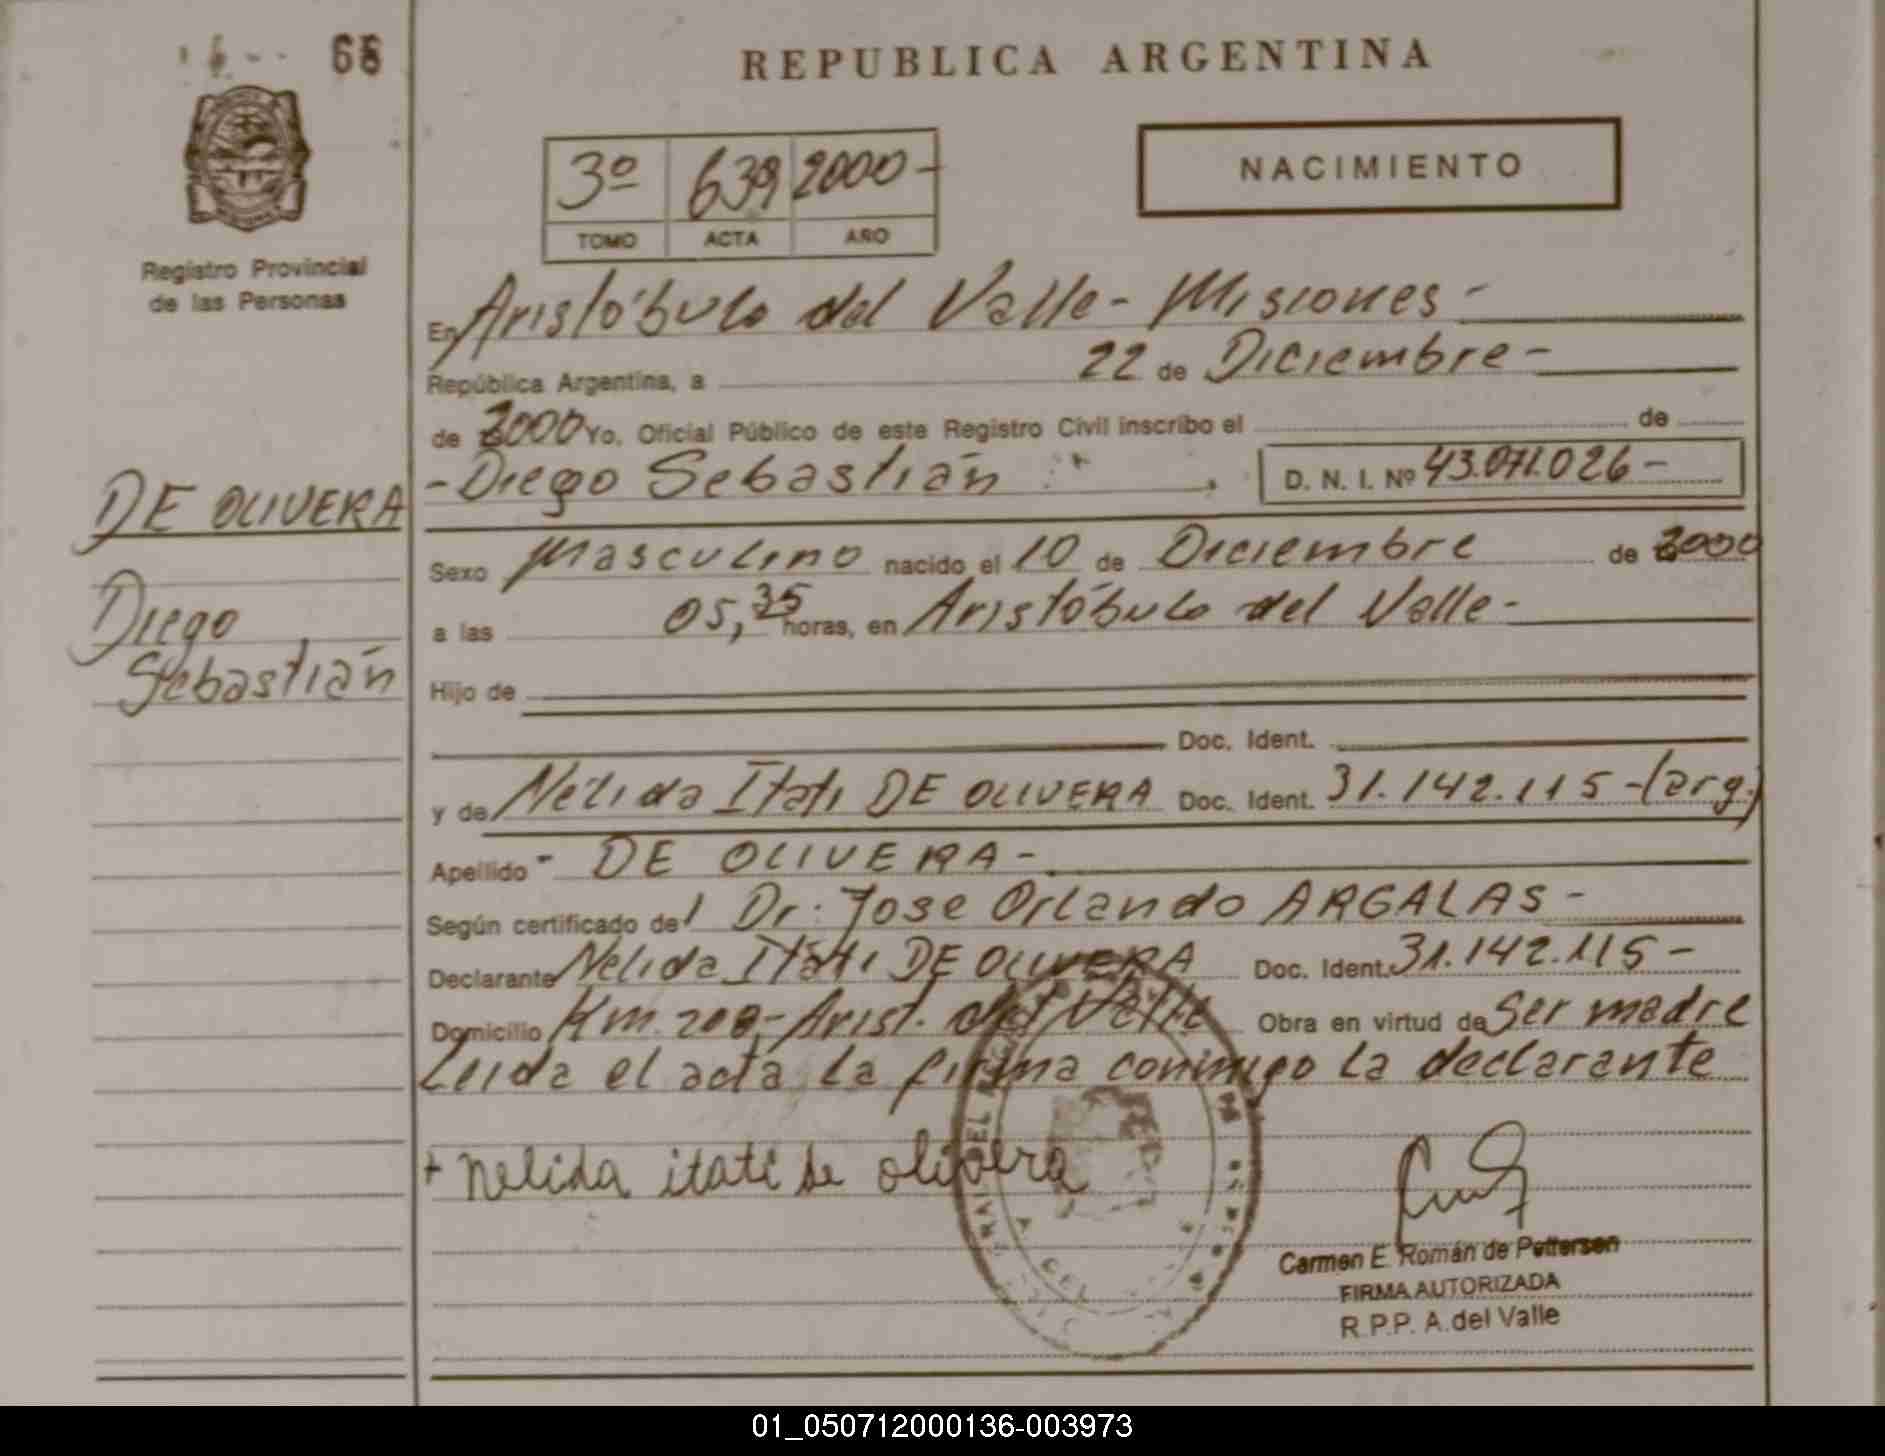 66
REPUBLICA ARGENTINA
NACIMIENTO
3º 639 2000-
TOMO ACTA AÑO
Registro Provincial
de las Personas
En Aristóbulo del Valle - Misiones -
República Argentina, a 22 de Diciembre -
de 2000 Yo, Oficial Público de este Registro Civil inscribo el de
DE OLIVERA
- Diego Sebastián D. N. I. Nº 43.071.026 -
Sexo Masculino nacido el 10 de Diciembre de 2000
Diego
Sebastián
a las 05,35 horas, en Aristóbulo del Valle -
Hijo de
Doc. Ident.
y de Nélida Itatí DE OLIVERA Doc. Ident. 31.142.115 - (arg.)
Apellido - DE OLIVERA -
Según certificado del Dr. Jose Orlando ARGALAS -
Declarante Nelida Itatí DE OLIVERA Doc. Ident. 31.142.115 -
Domicilio Km. 208,- Arist. del Valle Obra en virtud de Ser madre
Leida el acta la firma conmigo la declarante
+ nelida itati de olivera
Carmen E. Román de Pettersen
FIRMA AUTORIZADA
R.P.P. A. del Valle
01_050712000136-003973